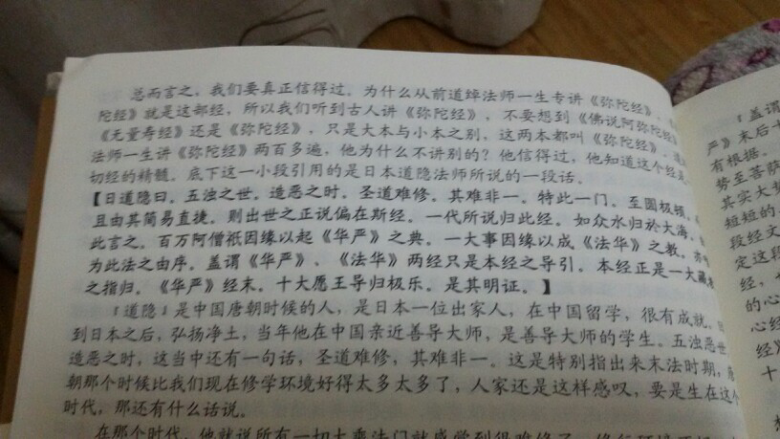 总而言之，我们要真正信得过。为什么从前道绰法师一生专讲《弥陀经》，《弥
陀经》就是这部经，所以我们听到古人讲《弥陀经》，不要想到《佛说阿弥陀经》
《无量寿经》还是《弥陀经》，只是大本与小本之别，这两本都叫《弥陀经》。道
法师一生讲《弥陀经》两百多遍，他为什么不讲别的？他信得过，他知道这个经是
切经的精髓。底下这一小段引用的是日本道隐法师所说的一段话。
【日道隐曰。五浊之世。造恶之时。圣道难修。其难非一。特此一门。至圆极顿。
且由其简易直捷。则出世之正说偏在斯经。一代所说归此经。如众水归於大海。
此言之。百万阿僧祇因缘以起《华严》之典。一大事因缘以成《法华》之教。亦
为此法之由序。盖谓《华严》、《法华》两经只是本经之导引。本经正是一大藏
之指归。《华严》经末。十大愿王导归极乐。是其明证。】
「道隐」是中国唐朝时候的人，是日本一位出家人，在中国留学，很有成就。
到日本之后，弘扬净土，当年他在中国亲近善导大师，是善导大师的学生。五浊恶世
造恶之时，这当中还有一句话，圣道难修，其难非一。这是特别指出来末法时期，
朝那个时候比我们现在修学环境好得太多太多了，人家还是这样感叹，要是生在这个
时代，那还有什么话说。
在那个时代，他就说所有一切大乘法门就感觉到很难修了
「盖谓
严》末后十
有根据。
势至菩萨
其实大
短短的
段经文
定这段
经，
的心
心经
经别